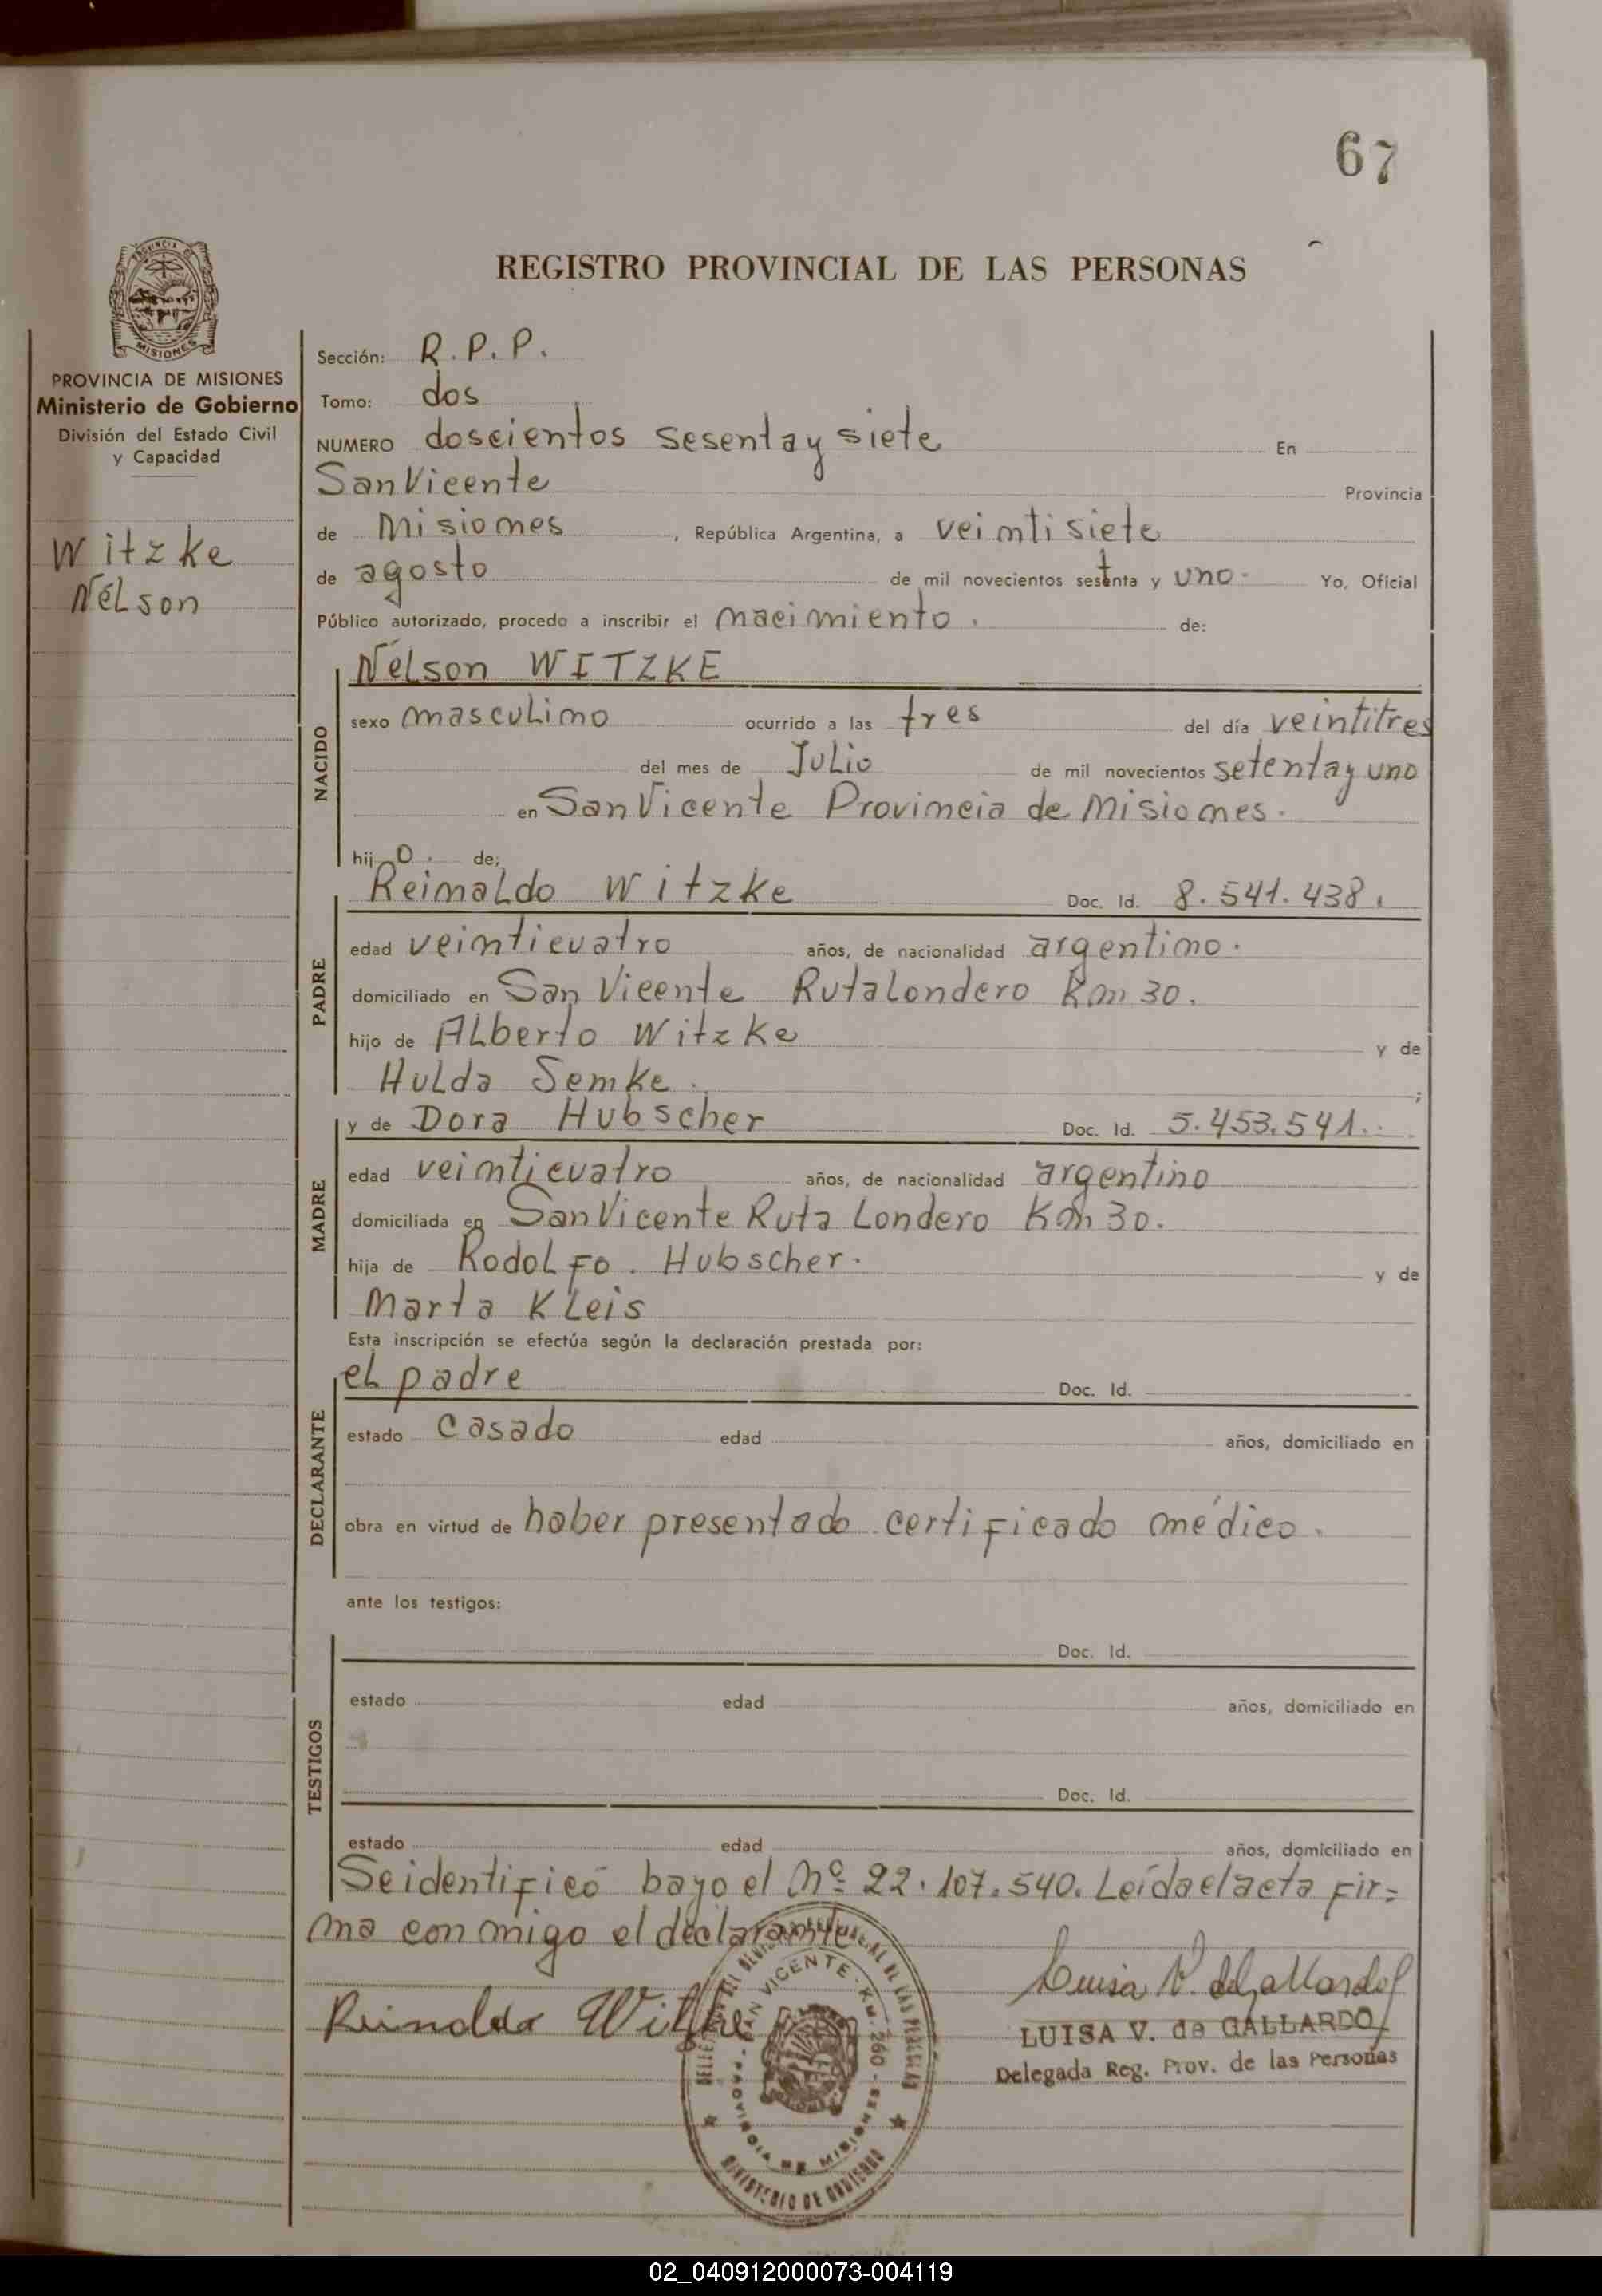 67
REGISTRO PROVINCIAL DE LAS PERSONAS
PROVINCIA DE MISIONES
Ministerio de Gobierno
División del Estado Civil
y Capacidad
Witzke
Nélson
Sección: R.P.P.
Tomo: dos
NUMERO doscientos sesenta y siete En
San Vicente Provincia
de Misiones, República Argentina, a veintisiete
de agosto de mil novecientos setenta y uno. Yo, Oficial
Público autorizado, procedo a inscribir el nacimiento. de:
NACIDO
Nélson WITZKE
sexo masculino ocurrido a las tres del día veintitres
del mes de Julio de mil novecientos setenta y uno
en San Vicente Provincia de Misiones.
hijo. de;
PADRE
Reinaldo Witzke Doc. Id. 8.541.438.
edad veinticuatro años, de nacionalidad argentino.
domiciliado en San Vicente Ruta Londero Km 30.
hijo de Alberto Witzke y de
Hulda Semke. ;
MADRE
y de Dora Hubscher Doc. Id. 5.453.541.
edad veinticuatro años, de nacionalidad argentino
domiciliada en San Vicente Ruta Londero Km 30.
hija de Rodolfo. Hubscher. y de
Marta Kleis
Esta inscripción se efectúa según la declaración prestada por:
DECLARANTE
el padre Doc. Id.
estado casado edad años, domiciliado en
obra en virtud de haber presentado certificado médico.
ante los testigos:
TESTIGOS
Doc. Id.
estado edad años, domiciliado en
Doc. Id.
estado edad años, domiciliado en
Se identificó bajo el Nº 22.107.540. Leída el acta fir=
ma conmigo el declarante
Reinaldo Witzke
Luisa V. de Gallardo
LUISA V. de GALLARDO
Delegada Reg. Prov. de las Personas
SAN VICENTE - KM. 260 - PROVINCIA DE MISIONES
MINISTERIO DE GOBIERNO
02_040912000073-004119